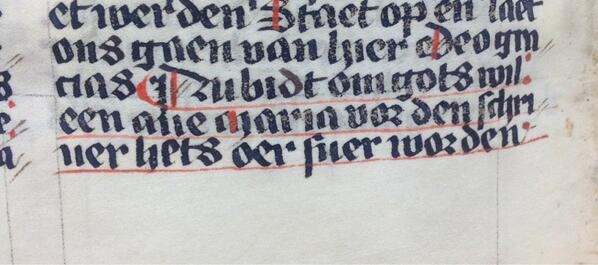 et wer den Staet op en laet
ons gaen van hier Deo gra
cias Nu bidt om gots wil
een aue maria vor den schri
uer hets oer suer worden